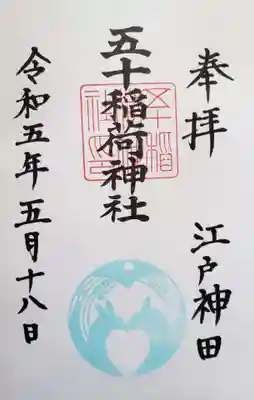 奉拝
江戸神田
五十稲荷神社
令和五年五月十八日